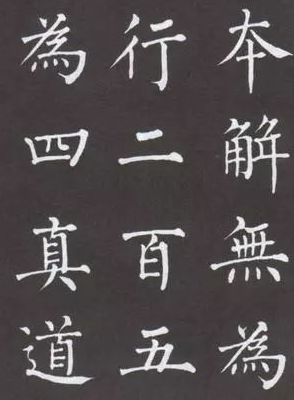 本解無為
行二百五
為四真道